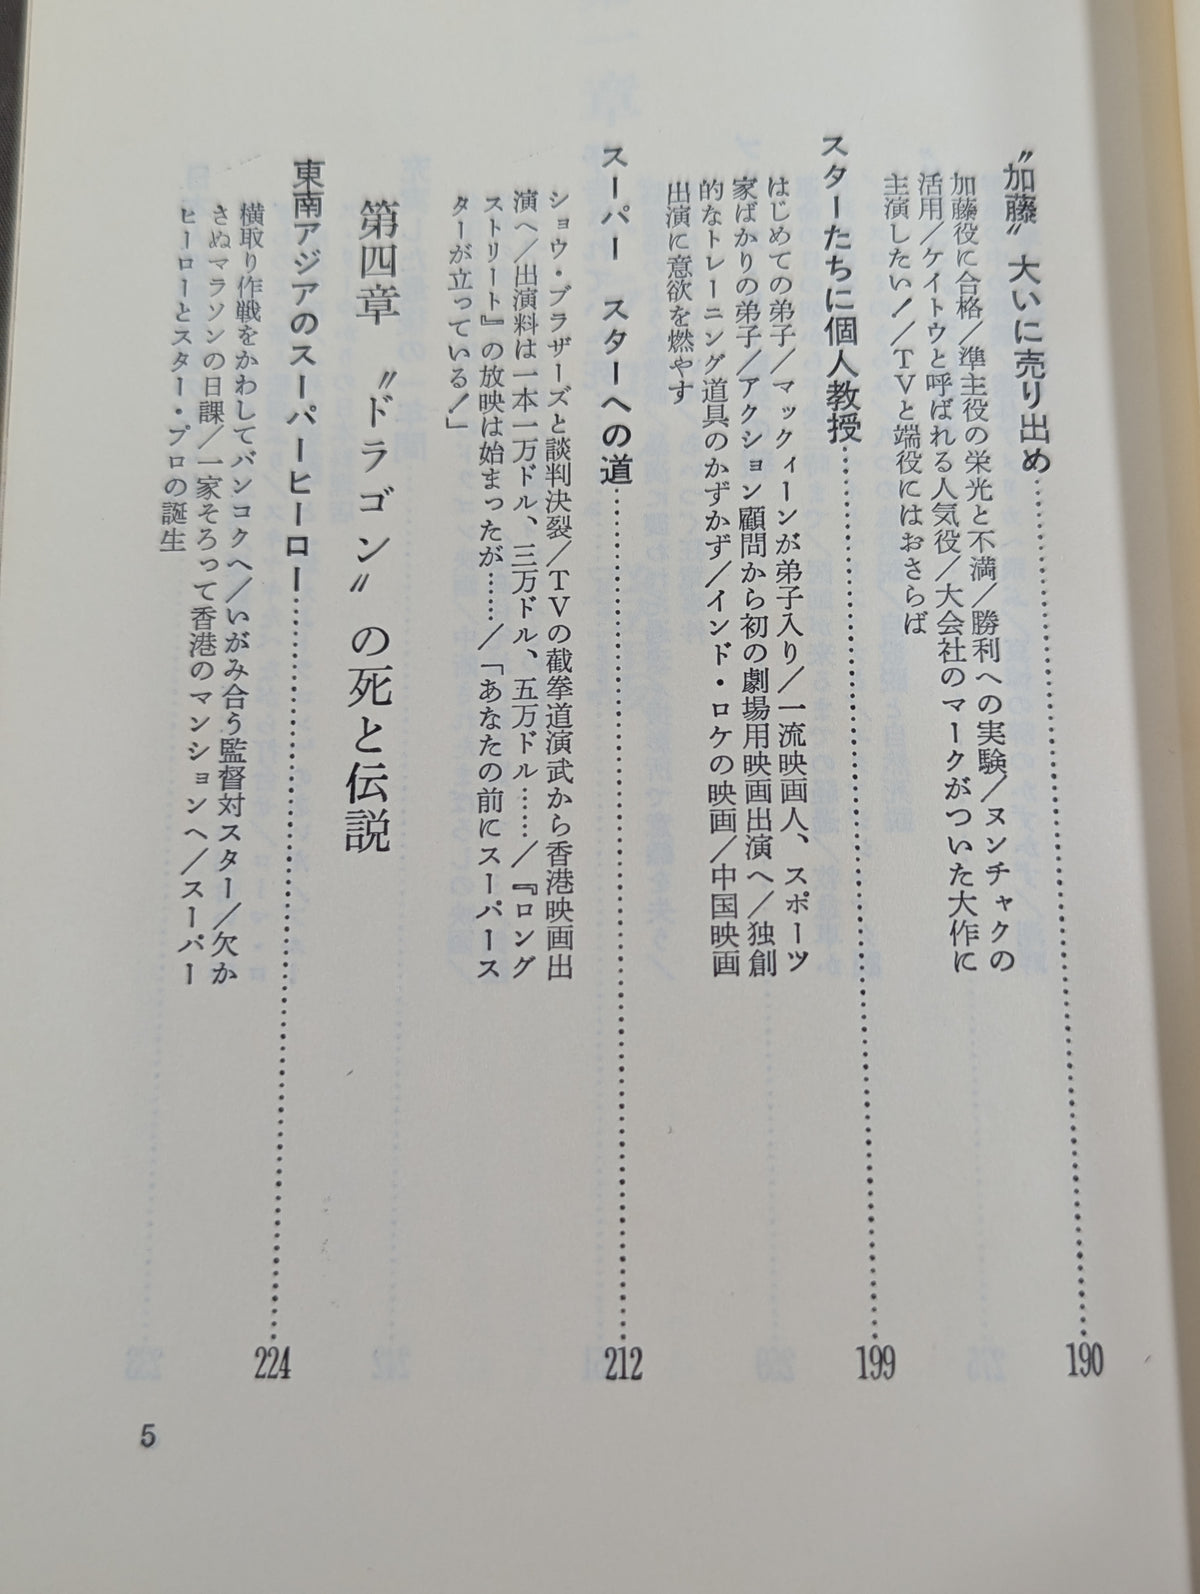 〝加藤〟大いに売り出め……………………190
加藤役に合格/準主役の栄光と不満/勝利への実験/ヌンチャクの
活用/ケイトウと呼ばれる人気役/大会社のマークがついた大作に
主演したい!/TVと端役にはおさらば
スターたちに個人教授……………………199
はじめての弟子/マックィーンが弟子入り/一流映画人、スポーツ
家ばかりの弟子/アクション顧問から初の劇場用映画出演へ/独創
的なトレーニング道具のかずかず/インド・ロケの映画/中国映画
出演に意欲を燃やす
スーパー スターへの道……………………212
ショウ・ブラザーズと談判決裂/TVの截拳道演武から香港映画出
演へ/出演料は一本一万ドル、三万ドル、五万ドル……/『ロング
ストリート』の放映は始まったが……/「あなたの前にスーパース
ターが立っている!」
第四章 〝ドラゴン〟の死と伝説
東南アジアのスーパーヒーロー……………………224
横取り作戦をかわしてバンコクへ/いがみ合う監督対スター/欠か
さぬマラソンの日課/一家そろって香港のマンションへ/スーパー
ヒーローとスター・プロの誕生
5